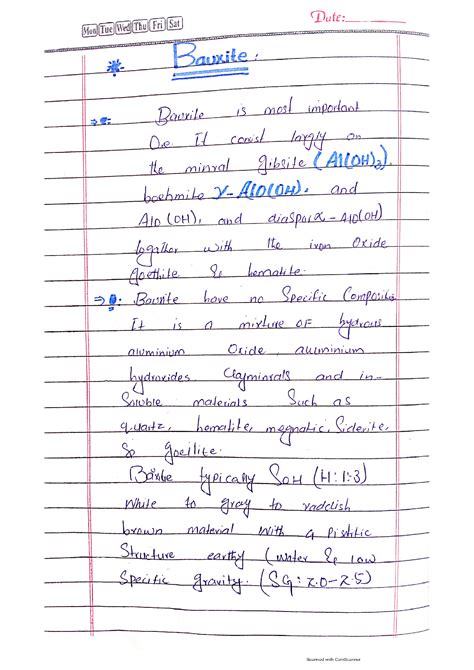 Mon Tue Wed Thu Fri Sat
Date:
Bauxite.
Bauxite is most important
Ore It consist largly on
the minral gibsite (Al(OH)3),
boehmite γ-AlO(OH), and
AlO(OH), and diaspor α-AlO(OH)
together with the iron Oxide
goethite & hematite.
Bauxite have no Specific Composition
It is a mixture OF hydrous
aluminium Oxide, aluminium
hydroxides Clayminrals and in-
Soluble materials Such as
quartz, hematite, magnatic, Siderite,
& goeilite.
typically SOH (H:1:3)
While to gray to raddish
brown material with a
Structure earthy (water & law
Specific gravity. (SG: 2.0-2.5)
Scanned with CamScanner